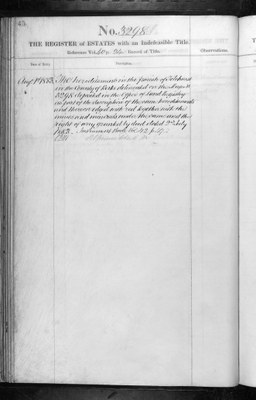 No. 3298
THE REGISTER of ESTATES with an Indefeasible Title.
Reference Vol. Record of Title.
Observations.
Date of Entry.
Augt 1st 1883. The hereditaments in the parish of
in the County of delineated on the Map No
3298 deposited in the Office of Land Registry
as part of the description of the same hereditaments
and thereon edged with red together with the
mines and minerals under the same and the
right of way granted by deed dated 2nd July
1883.